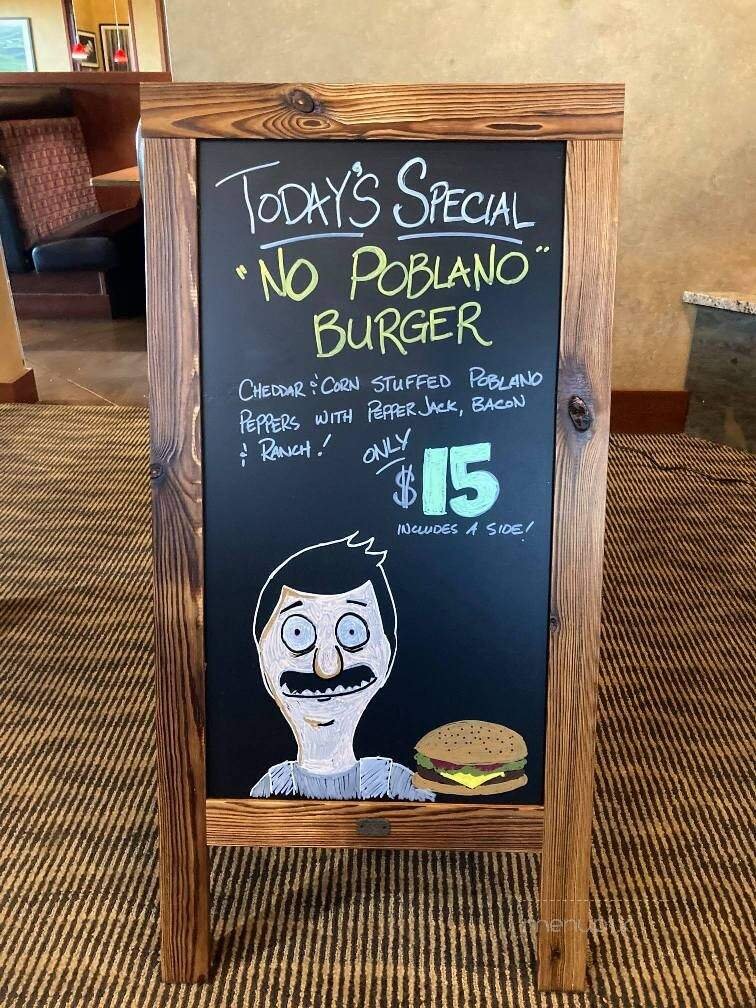 TODAY'S SPECIAL
"NO POBLANO"
BURGER
CHEDDAR & CORN STUFFED POBLANO
PEPPERS WITH PEPPER JACK, BACON
& RANCH!
ONLY
$15
INCLUDES A SIDE!
menupix